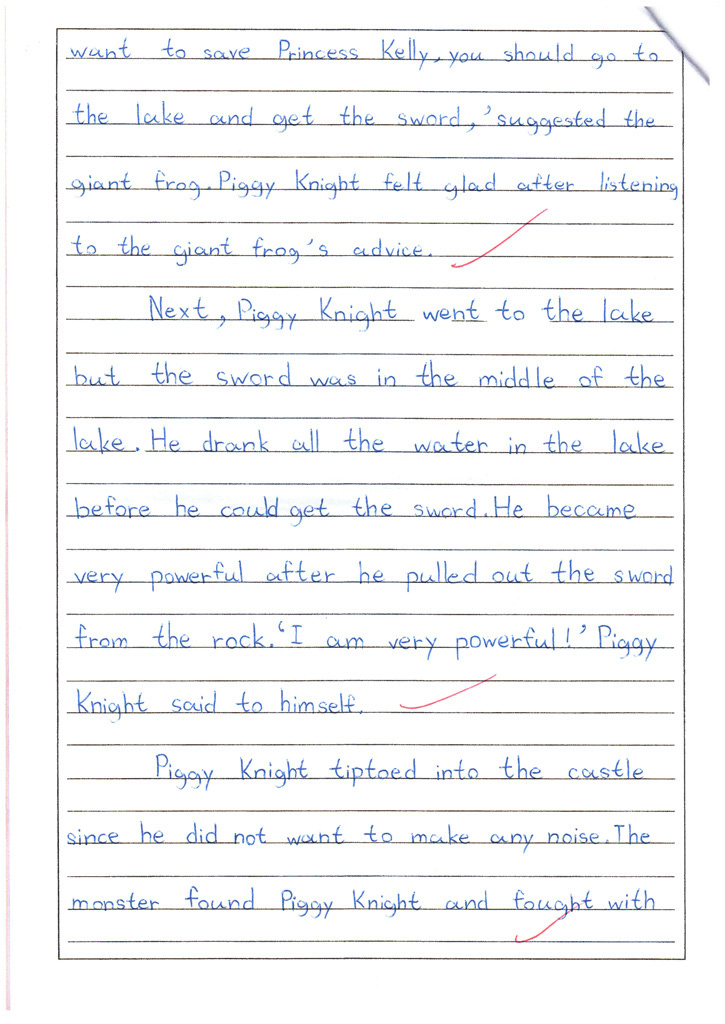 want to save Princess Kelly, you should go to
the lake and get the sword,' suggested the
giant frog. Piggy Knight felt glad after listening
to the giant frog's advice.
Next, Piggy Knight went to the lake
but the sword was in the middle of the
lake. He drank all the water in the lake
before he could get the sword. He became
very powerful after he pulled out the sword
from the rock. 'I am very powerful!' Piggy
Knight said to himself.
Piggy Knight tiptoed into the castle
since he did not want to make any noise. The
monster found Piggy Knight and fought with